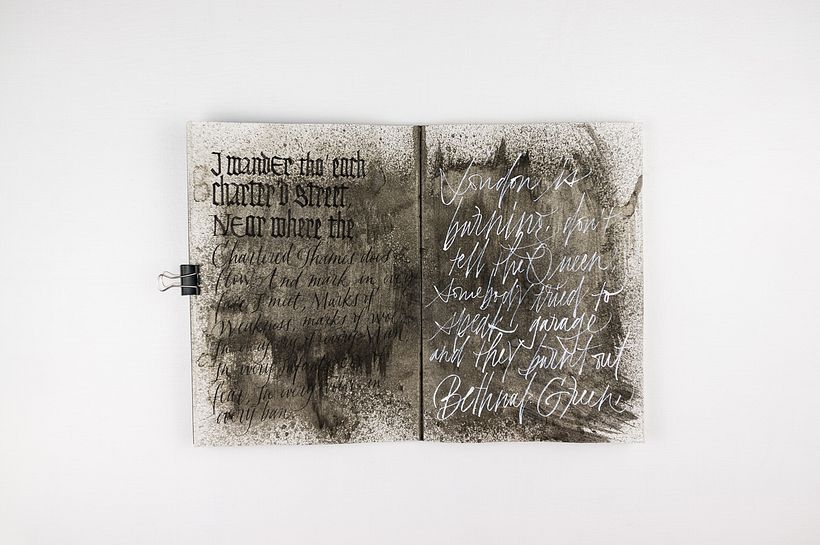 I wander tho each
charter'd street
Near where the
Chartered Thames does
flow And mark in every
face I meet, Marks of
Weakness, marks of woe
In every cry of every Man
In every
fear In every in
every ban
London is
burning, don't
tell the Queen
Somebody tried to
speak garage
and they burnt out
Bethnal Green